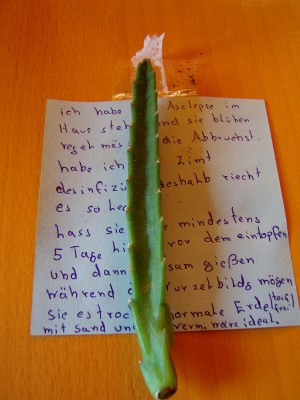 ich habe Aselepse im
Haus steh und sie blühen
regelmäs die Abbruchst.
habe ich Zimt
desinfizi deshalb riecht
es so
lass sie mindestens
5 Tage vor dem eintopfen
und dann sam gießen
während Wurzelbilds mögen
sie es troc normale Erde (torf frei)
mit sand und verm. wäre ideal.